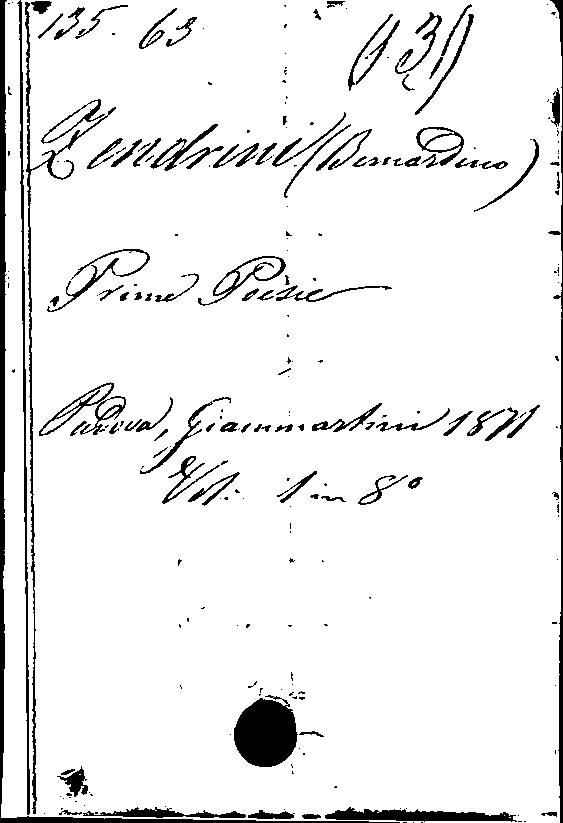 135. 63
Zendrini (Bernardino)
Prime Poèsie
Padova, Giammartini 1871
Vol. 1 in 8°